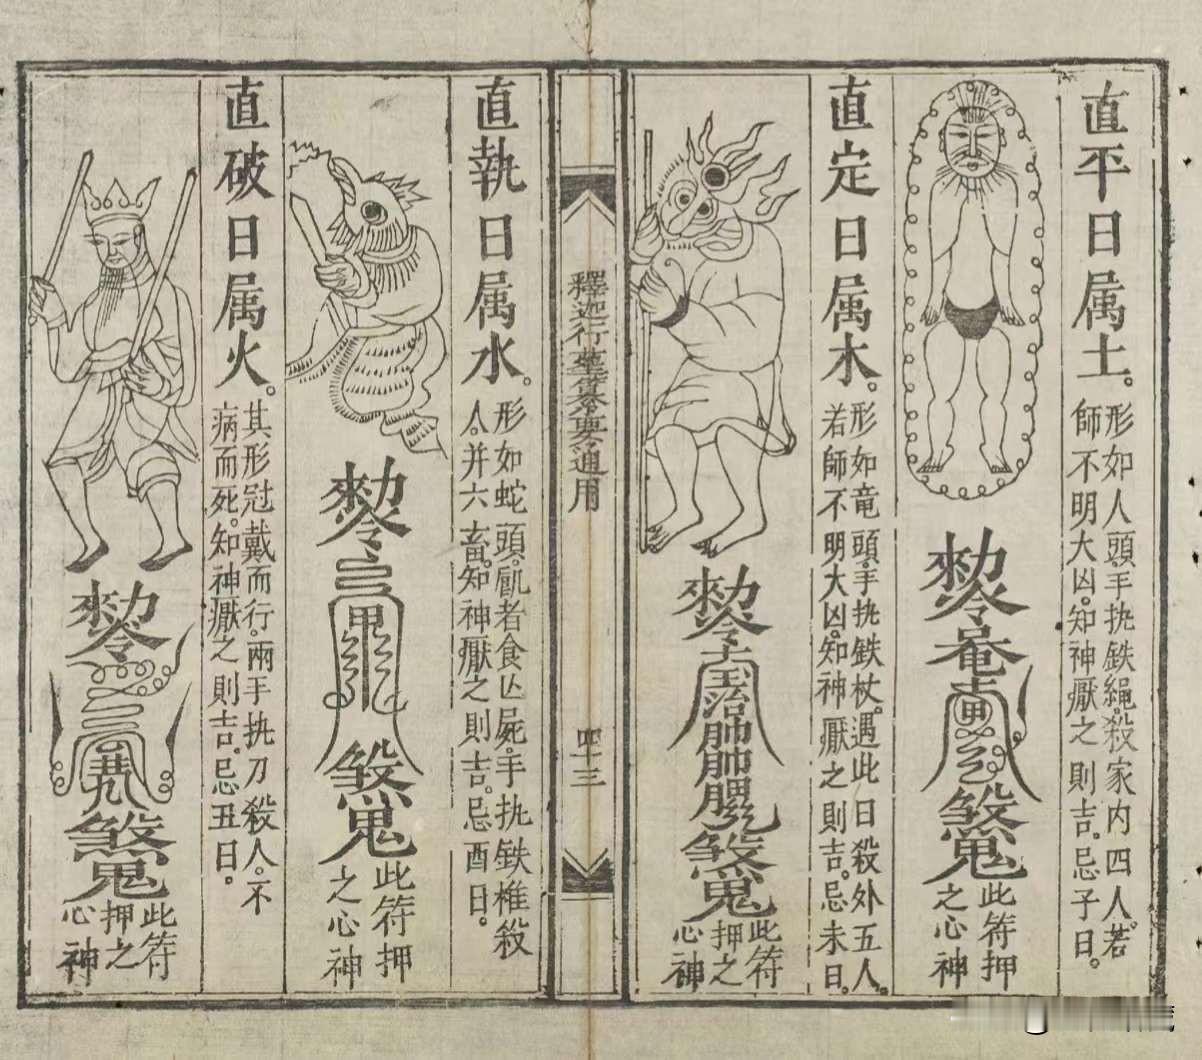 直平日属土。
形如人頭。手执鉄繩。殺家内四人。若
師不明大凶。知神厭之則吉。忌子日。
此符押
之心神
直定日属木。
形如竜頭。手执鉄杖。遇此日殺外五人。
若師不明大凶。知神厭之則吉。忌未日。
此符
押之
心神
釋迦行墓纂要通用
四十三
直執日属水。
形如蛇頭。飢者食亾屍。手执鉄椎殺
人。并六畜。知神厭之則吉。忌酉日。
此符押
之心神
直破日属火。
其形冠戴而行。兩手执刀殺人。不
病而死。知神厭之則吉。忌丑日。
此符
押之
心神